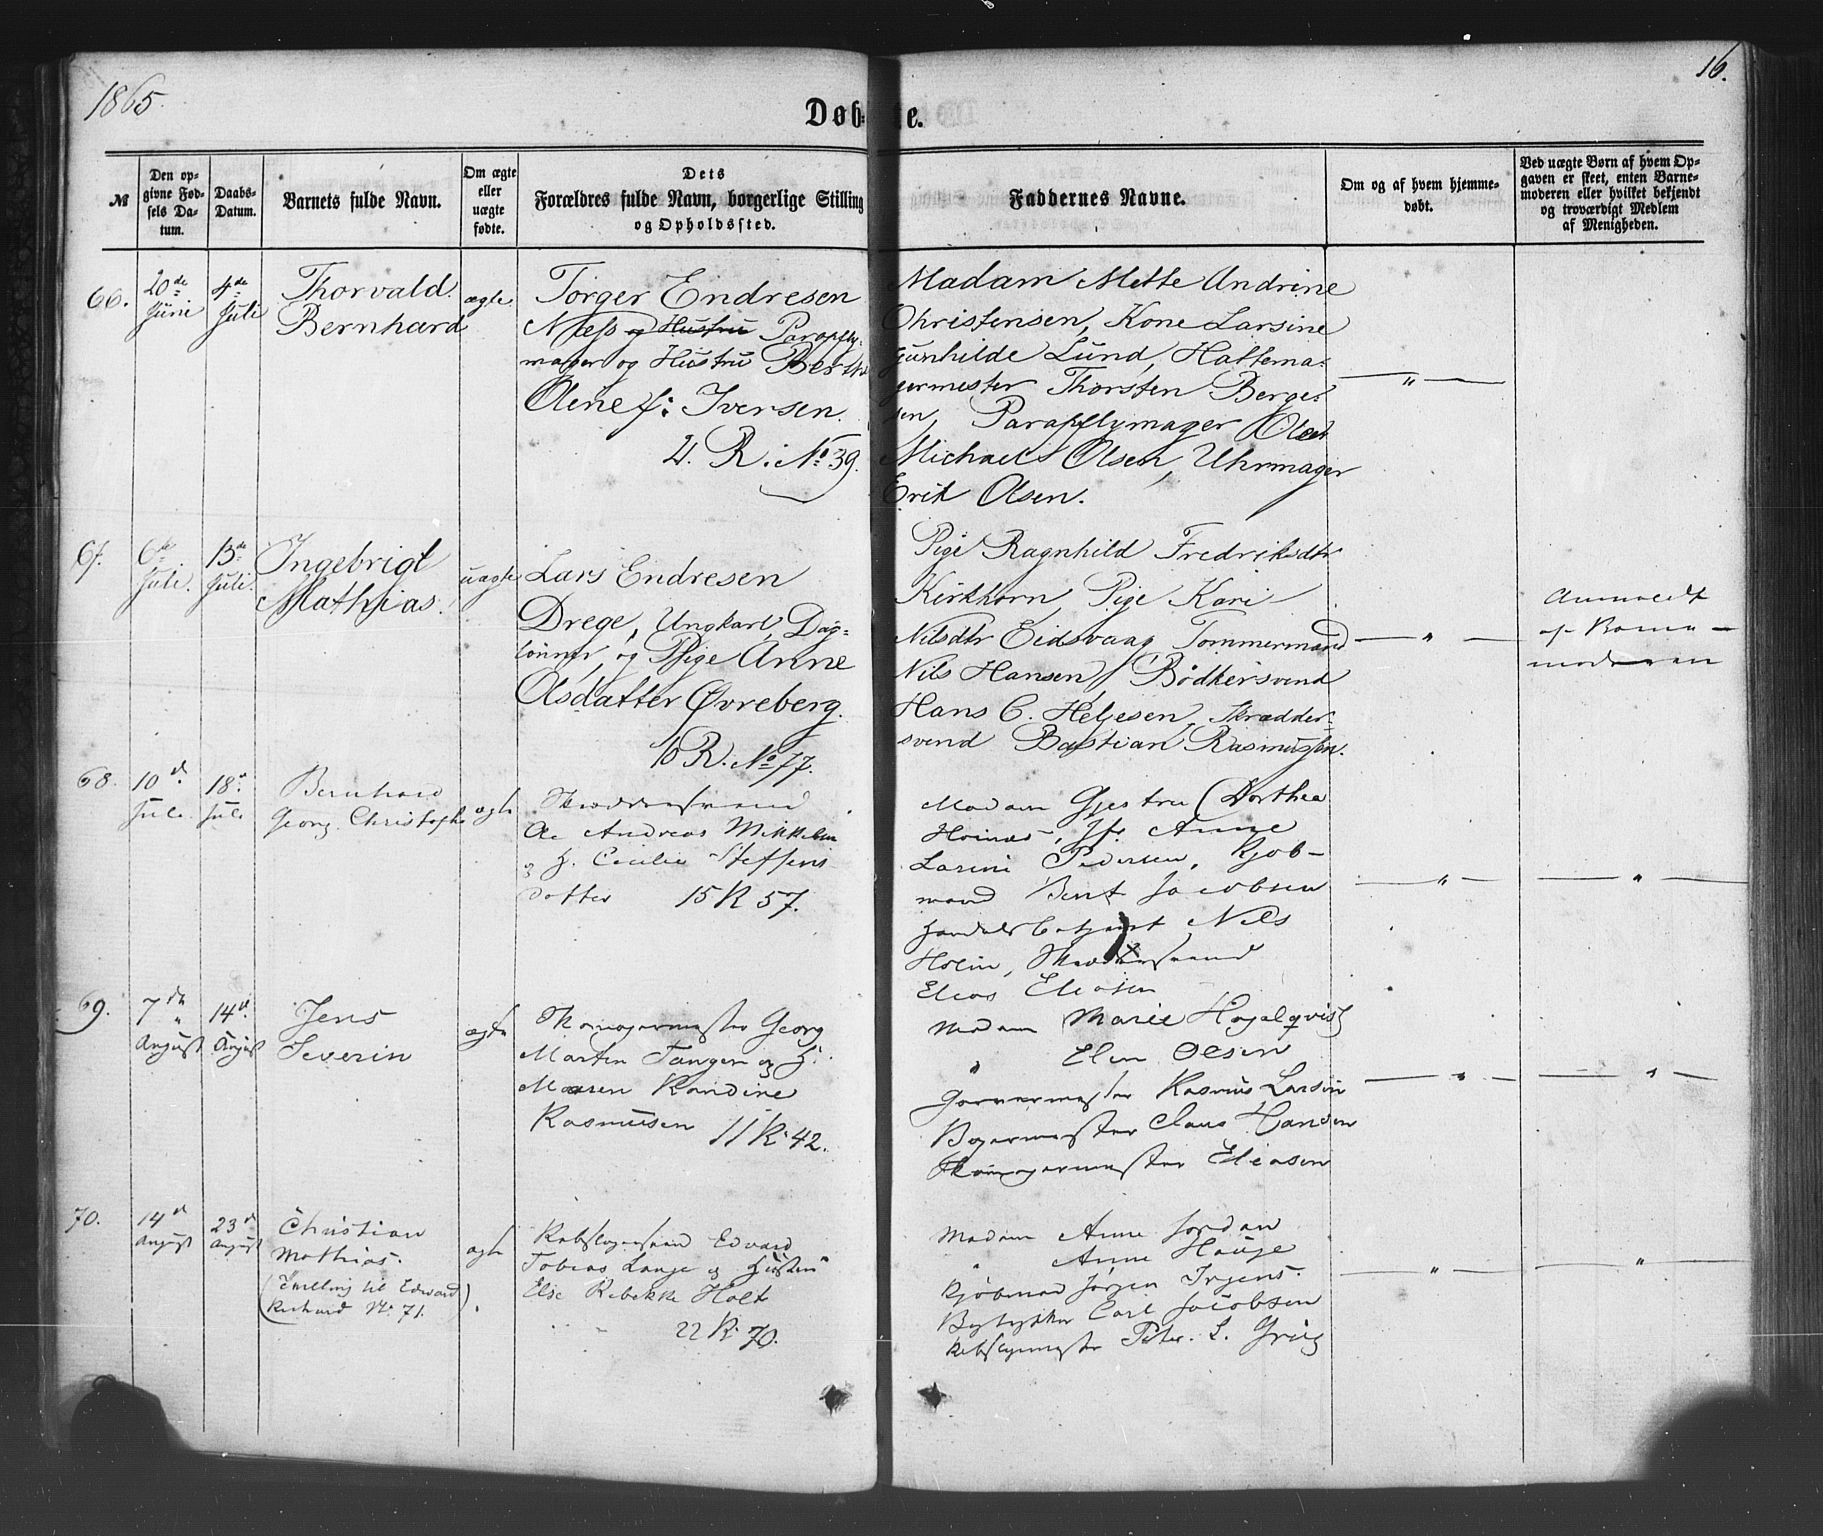 1865.
16.
Døb te.
№
Den op-
givne Fød-
sels Da-
tum.
Daabs-
Datum.
Barnets fulde Navn.
Om ægte
eller
uægte
fødte.
Dets
Forældres fulde Navn, borgerlige Stilling
og Opholdssted.
Faddernes Navne.
Om og af hvem hjemme-
døbt.
Ved uægte Børn af hvem Op-
gaven er skeet, enten Barne-
moderen eller hvilket bekjendt
og troværdigt Medlem
af Menigheden.
66.
20de
Juni
4de
Juli
Thorvald
Bernhard
ægte
Torger Endresen
Næss og Hustru Paraply-
mager og Hustru Berthe
Oline f: Iversen.
21. R. No 39.
Madam Mette Andrine
Christensen, Kone Larsine
Gunhilde Lund, Hattema-
germester Thorsten Berge-
sen, Paraplymager Ole
Michael Olsen, Uhrmager
Erik Olsen.
— " —
67.
6de
Juli.
15de
Juli.
Ingebrigt
Mathias.
uægte
Lars Endresen
Drege, Ungkarl, Dag-
lønner, og Pige Anne
Olsdatter Øvreberg.
16 R. No 77.
Pige Ragnhild Fredriksdtr
Kirkhorn, Pige Kari
Nilsdtr Eidsvaag, Tømmermand
Nils Hansen, Bødkersvend
Hans C. Helgesen, Skrædder-
svend Bastian Rasmussen.
— " —
Anmeldt
af Barne-
moderen
68.
10d
Juli
18d
Juli
Bernhard
Georg Christophe
ægte
Skræddersvend
Andreas Mikkelsen
og H. Cecilie Steffens-
datter 15 R 57.
Madam Gjestru (Dorthea
Jfr Anne
Larine Pedersen, Kjøb-
mand Bent Jacobsen
Handelsbetjent Nils
Holm, Skræddersvend
Elias Eliasen
— " —
— " —
69.
7de
August
14d
August
Jens
Severin
ægte
Skomagermester Georg
Martin Tangen og H.
Maren Randine
Rasmussen 11 R. 42.
Madam Marie Høgelqvist
" Elen Olsen
Garvermester Rasmus Larsen
Bagermester Claus Hansen
Skomagermester Eliasen
— " —
— " —
70.
14d
August
23d
August
Christian
Mathias.
(Tvilling til Edward
Richard No. 71.)
ægte
Rebslagersvend Edvard
Tobias Lange og Hustru
Else Rebekke Holt
22 R. 70.
Madam Anne Jordan
" Anne Hauge
Kjøbmand Jørgen Irgens.
Bogtrykker Carl Jacobsen
Rebslagermester Peter L. Grieg
— " —
— " —